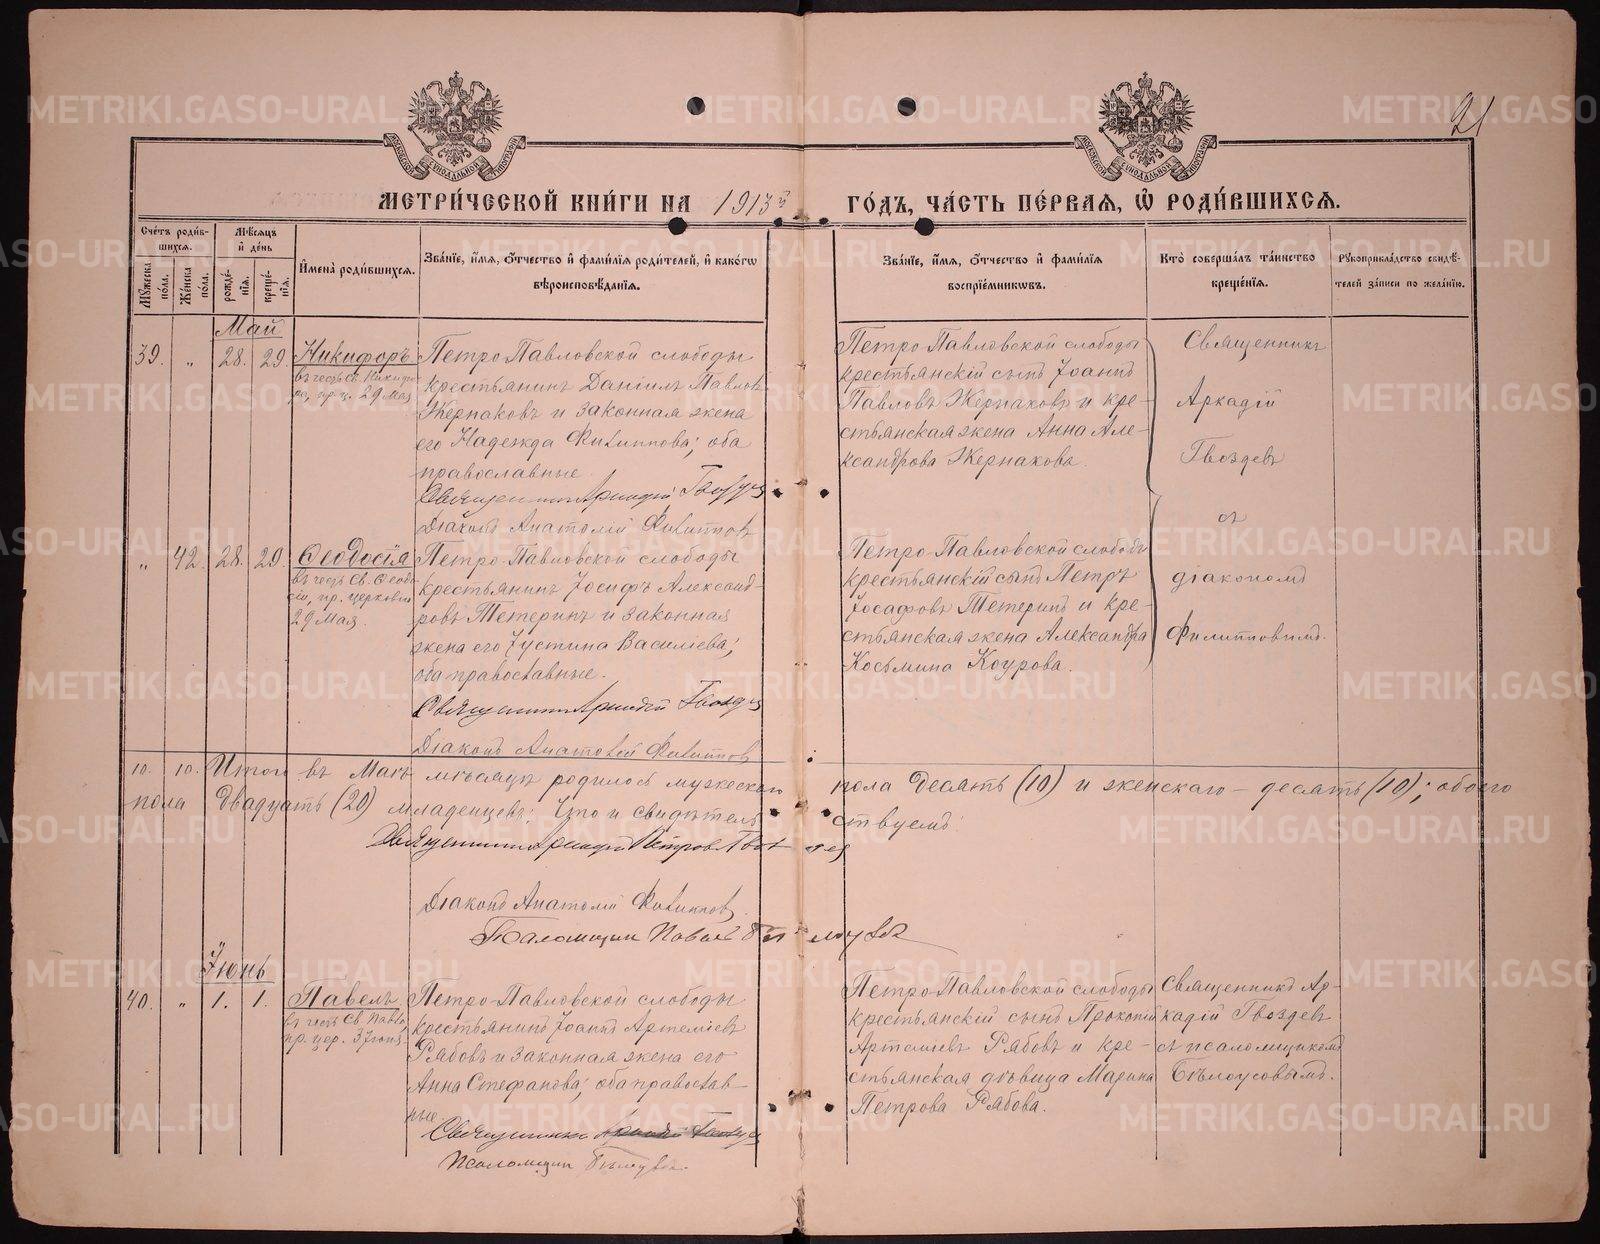 21
МОСКОВСКОЙ СѴНОДАЛЬНОЙ ТИПОГРАФІИ
МОСКОВСКОЙ СѴНОДАЛЬНОЙ ТИПОГРАФІИ
МЕТРИ́ЧЕСКОЙ КНИ́ГИ НА 1913й ГО́ДЪ, ЧА́СТЬ ПЕ́РВАЯ, Ѡ҆ РОДИ́ВШИХСЯ.
Сче́тъ роди́в-
шихся.
Мꙋ́жеска по́ла.
Же́нска по́ла.
Мѣ́сяцъ
и҆ де́нь
рожде́нїя.
креще́нїя.
И҆мена̀ роди́вшихся.
Зва́нїе, и҆́мя, ѻ҆́тчество и҆ фами́лїя роди́телей, и҆ како́гѡ
вѣроисповѣ́данїя.
Зва́нїе, и҆́мя, ѻ҆́тчество и҆ фами́лїя
воспрїе́мникѡвъ.
Кто̀ соверша́лъ та́инство
креще́нїя.
Рꙋкоприкла́дство свидѣ́-
телей за́писи по жела́нїю.
Май
39. „ 28. 29. Никифоръ
въ честь св. Никифо-
ра, пр. ц. 29 мая
Петро-Павловской слободы
крестьянинъ Данiилъ Павловъ
Жернаковъ и законная жена
его Надежда Филиппова; оба
православные.
Священникъ Аркадiй Гвоздевъ
Дiаконъ Анатолiй Филипповъ
Петро-Павловской слободы
крестьянскiй сынъ Iоаннъ
Павловъ Жернаковъ и кре-
стьянская жена Анна Але-
ксандрова Жернакова.
Священникъ
Аркадiй
Гвоздевъ
съ
дiакономъ
Филипповымъ.
„ 42. 28. 29. Ѳеодосiя
въ честь св. Ѳеодо-
сiи, пр. церковью
29 мая.
Петро-Павловской слободы
крестьянинъ Iосифъ Александ-
ровъ Тетеринъ и законная
жена его Iустина Василiева;
оба православные.
Священникъ Аркадiй Гвоздевъ
Дiаконъ Анатолiй Филипповъ
Петро-Павловской слободы
крестьянскiй сынъ Петръ
Iосафовъ Тетеринъ и кре-
стьянская жена Александра
Косьмина Коурова.
10. 10. Итого въ Маѣ мѣсяцѣ родилось мужескаго пола десять (10) и женскаго – десять (10); обоего
пола двадцать (20) младенцевъ; что и свидѣтельствуемъ:
Священникъ Аркадiй Петровъ Гвоздевъ
Дiаконъ Анатолiй Филипповъ.
Псаломщикъ Павелъ Бѣлоусовъ
Iюнь
40. „ 1. 1. Павелъ
въ честь св. Павла,
пр. цер. 3 Iюня
Петро-Павловской слободы
крестьянинъ Iоаннъ Артемiевъ
Рябовъ и законная жена его
Анна Стефанова; оба православ-
ные.
Священникъ Аркадiй Гвоздевъ
Псаломщикъ Бѣлоусовъ.
Петро-Павловской слободы
крестьянскiй сынъ Прокопiй
Артемiевъ Рябовъ и кре-
стьянская дѣвица Марина
Петрова Рябова.
Священникъ Ар-
кадiй Гвоздевъ
съ псаломщикомъ
Бѣлоусовымъ.
METRIKI.GASO-URAL.RU